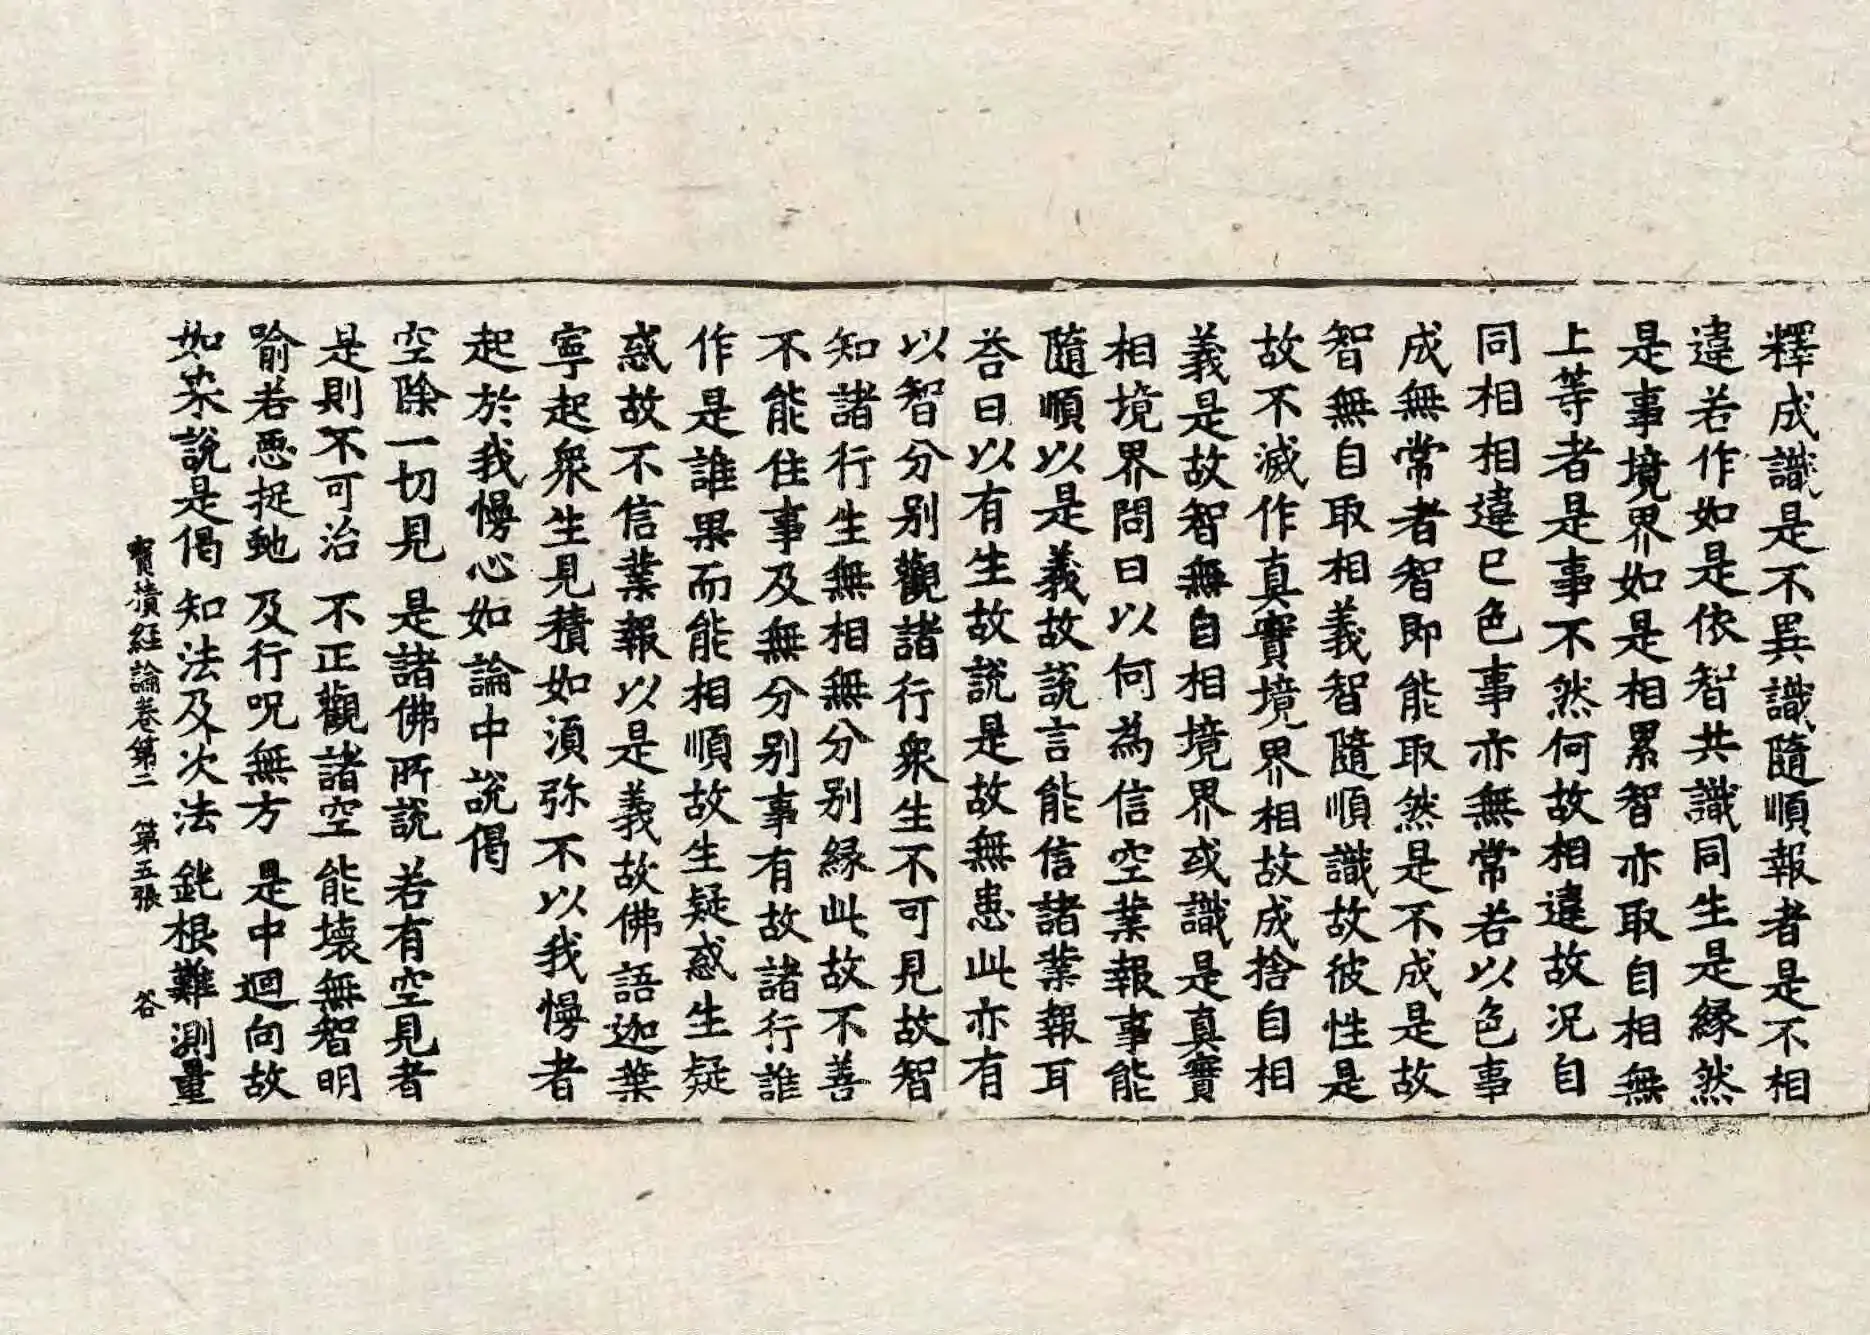 釋成識是不異識隨順報者是不相
違若作如是依智共識同生是緣然
是事境界如是相累智亦取自相無
上等者是事不然何故相違故況自
同相相違已色事亦無常若以色事
成無常者智即能取然是不成是故
智無自取相義智隨順識故彼性是
故不滅作真實境界相故成捨自相
義是故智無自相境界或識是真實
相境界問曰以何為信空業報事能
隨順以是義故說言能信諸業報耳
荅曰以有生故說是故無患此亦有
以智分别觀諸行衆生不可見故智
知諸行生無相無分别緣此故不善
不能住事及無分别事有故諸行誰
作是誰果而能相順故生疑惑生疑
惑故不信業報以是義故佛語迦葉
寧起衆生見積如湏弥不以我慢者
起於我慢心如論中說偈
空除一切見 是諸佛所說 若有空見者
是則不可治 不正觀諸空 能壞無智明
喻若惡捉虵 及行呪無方 是中迴向故
如來說是偈 知法及次法 鈍根難測量
寳積經論卷第二 第五張 谷